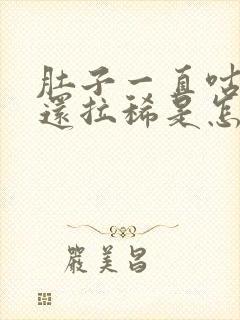 肚子一直咕
還拉稀是怎
嚴美昌